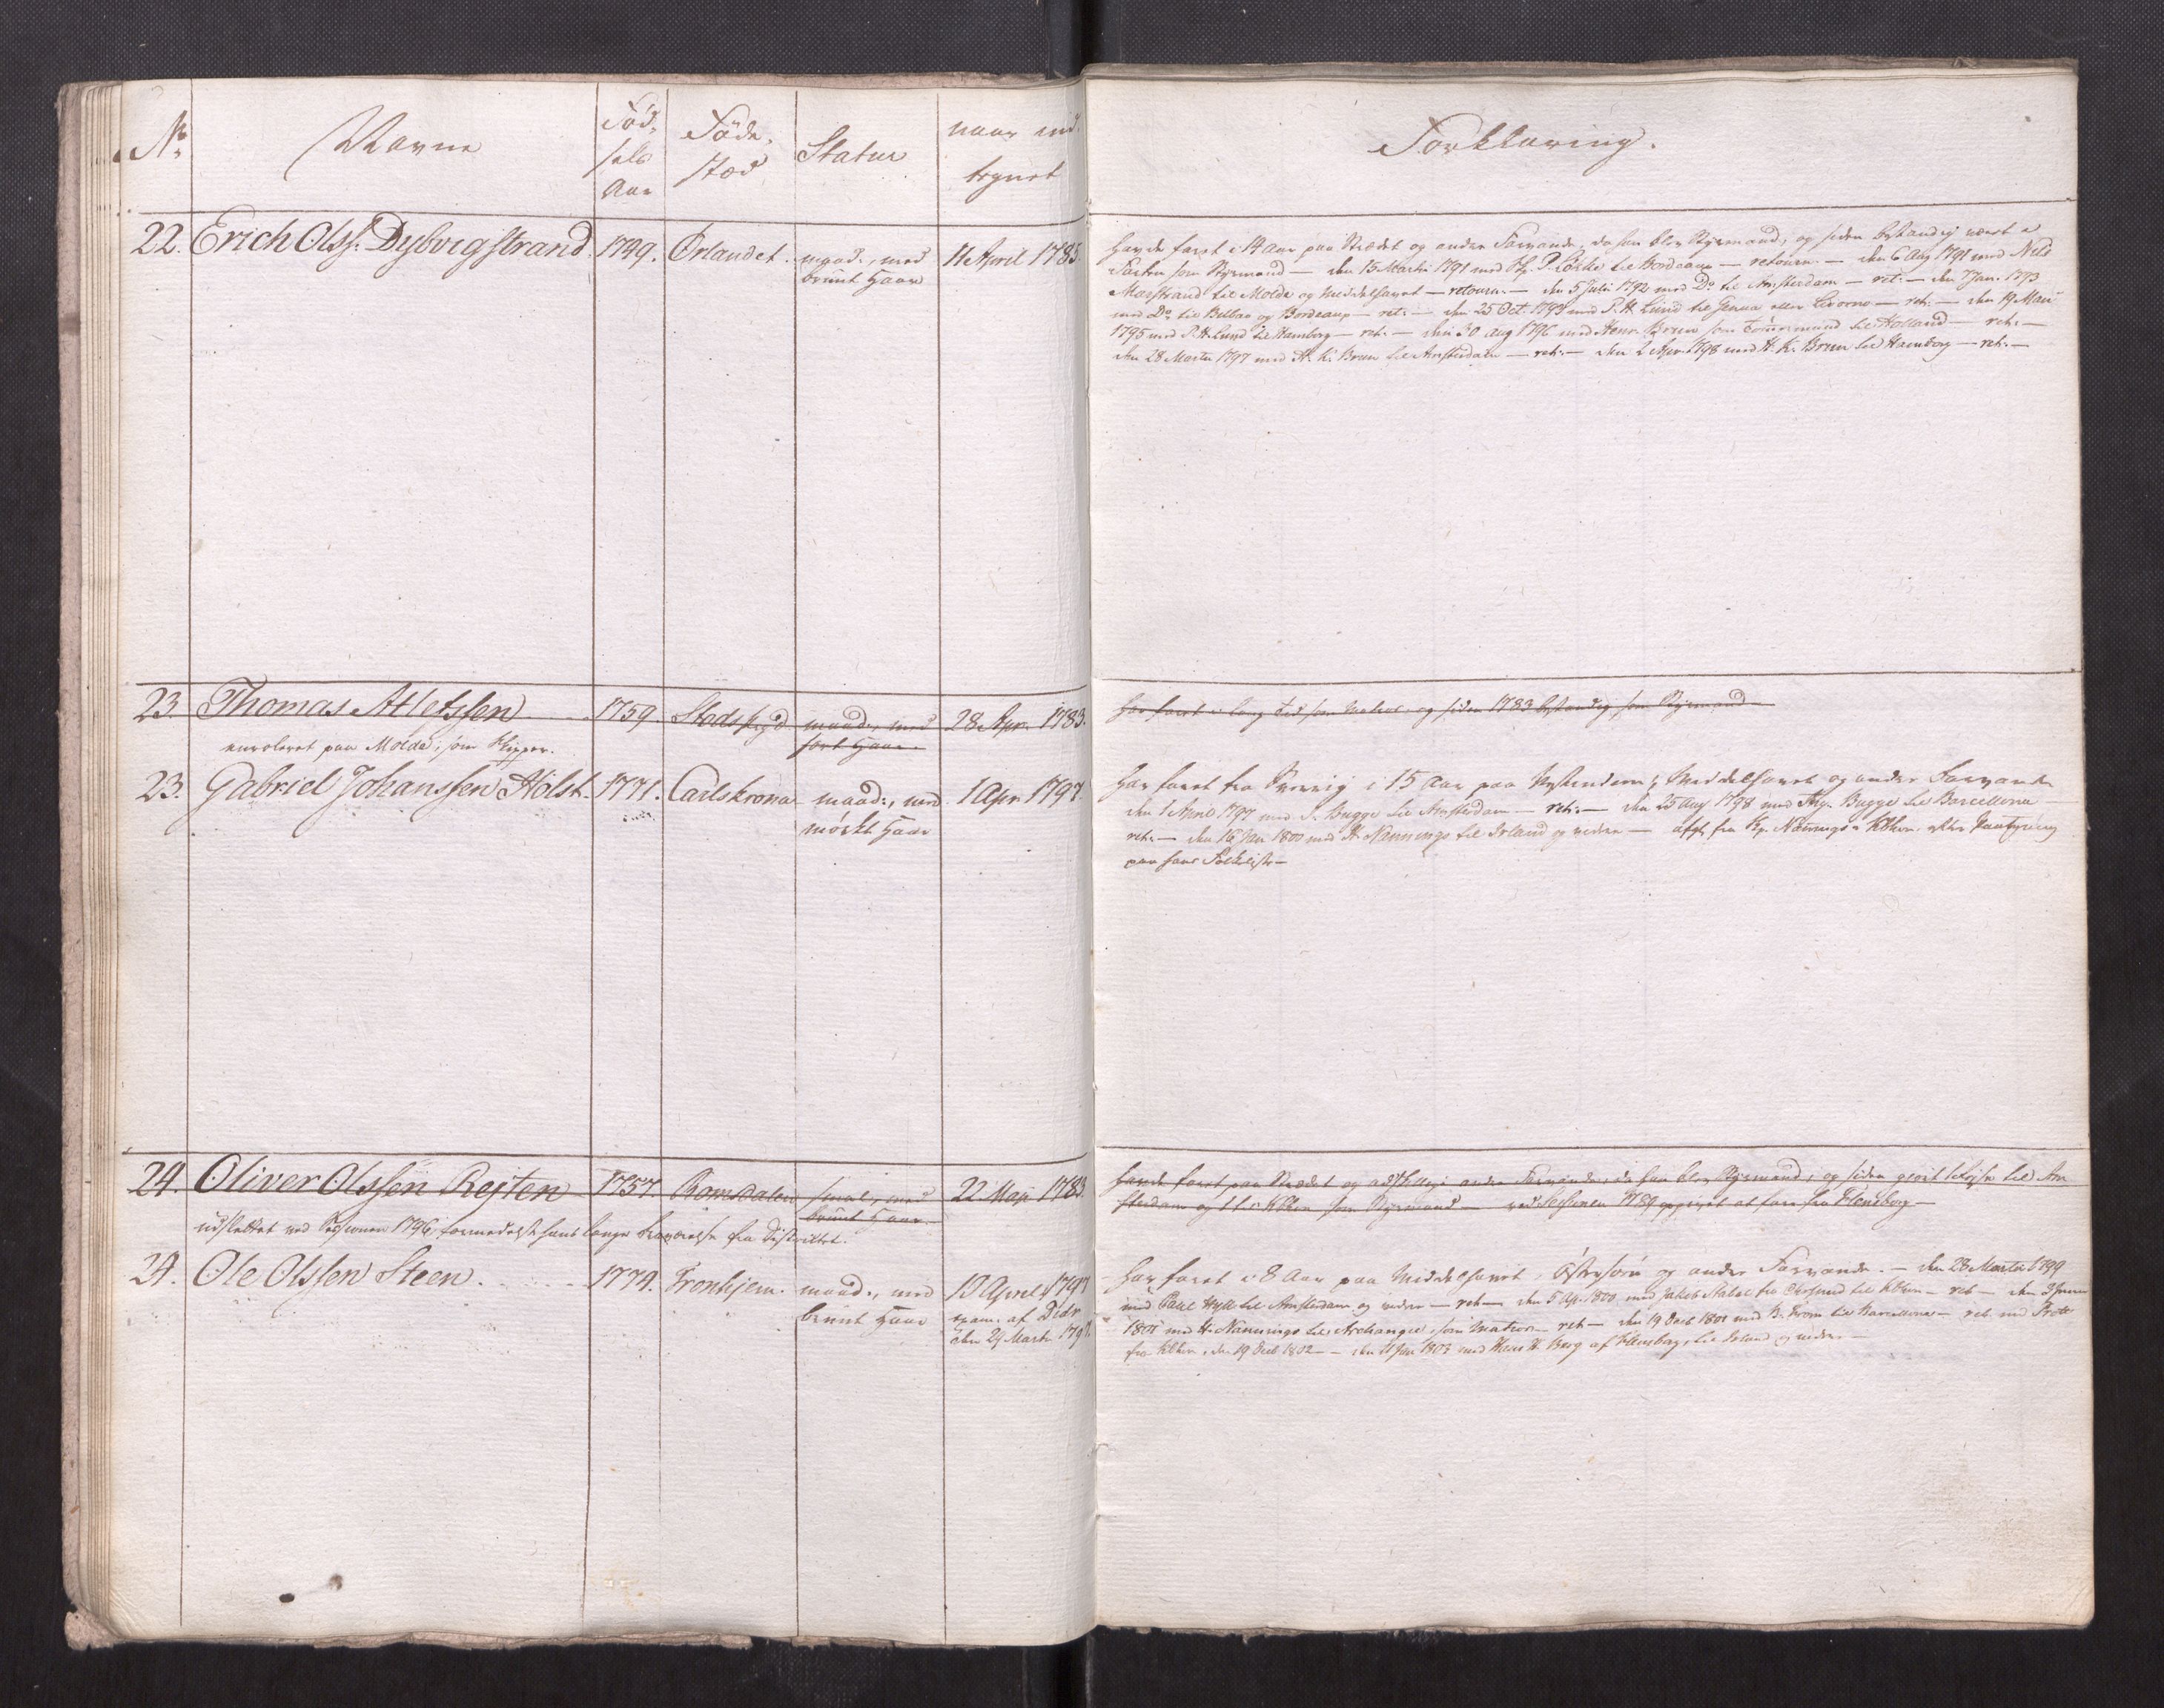 No
Navne
Fød-
sels
Aar
Føde-
stæd
Statur
naar ind-
tegnet
Forklaring.
22. Erich Olss. Dybvigstrand. 1749. Ørlandet. maad:, med 11 April 1785.
brunt Haar
Havde faret i 14 Aar paa Strædet og andre Farvande, da han blev Styrmand, og siden bestandig været i
Farten som Styrmand — den 15 Martii 1791 med til Bordeaux — retourn. — den 6 Aug 1791 med Nils
Marstrand til Molde og Middelhavet — retourn. — den 5 Julii 1792 med Do til Amsterdam — ret: — den 7 Jan. 1793
med Do til Bilbao og Bordeaux — ret: — den 25 Oct. 1793 med P. H. Lund til Genua eller Livorno — ret: — den 19 Maii
1795 med P. H. Lund til Hamborg — ret: — den 30 Aug 1796 med Henr. Brun som Tømmermand til Holland — ret: —
den 28 Martii 1797 med H. K. Brun til Amsterdam — ret: — den 2 Apr. 1798 med H. K. Brun til Hamborg — ret: —
23. Thomas Atletssen 1759. maad:, med 28 Apr. 1783.
sort Haar.
enrolleret paa Molde, som Skipper.
Har faret i lang Tid som Matros og siden 1783 bestandig som Styrmand —
23. Gabriel Johanssen Holst. 1771. Carlskrona maad:, med 1 Apr. 1797.
mørkt Haar
Har faret fra Sverrig i 15 Aar paa Middelhavet og andre Farvande
den 1 April 1797 med S. Bugge til Amsterdam — ret: — den 25 Aug 1798 med Bugge til Barcellona —
ret: — den 16 Jan 1800 med H. Nannings til Irland og videre — afgl. fra Kbhvn. efter
paa hans
24. Oliver Olssen Rejten 1757. Romsdalen smal, med 22 Maji 1783.
brunt Haar.
udslettet ved Sessionen 1796, formedelst hans lange Fraværelse fra Districtet.
Havde faret paa Strædet og adskillige andre Farvande, da han blev Styrmand, og siden gjort 1 Rejse til Am-
sterdam og 1 til Kbhvn som Styrmand — ved Sessionen 1789 opgivet at fare fra Flensborg —
24. Ole Olssen Steen. 1774. Tronhjem. maad:, med 13 April 1797
brunt Haar exam. af Distr
den 29 Martii 1797.
Har faret i 8 Aar paa Middelhavet, Østersøen og andre Farvande. — den 28 Martii 1799
med Paul Hyll til Amsterdam og videre — ret — den 5 Apr. 1800 med Jakob Stabel fra Chrsund til Kbhvn — ret — den
1801 med H. Nannings til Archangel som Matros — ret — den 19 Octb 1801 med B. From til Barcellona — ret med
fra Kbhvn, den 19 1802 — den 11 Jan 1803 med Hans H. Berg af Flensborg, til Irland og videre —